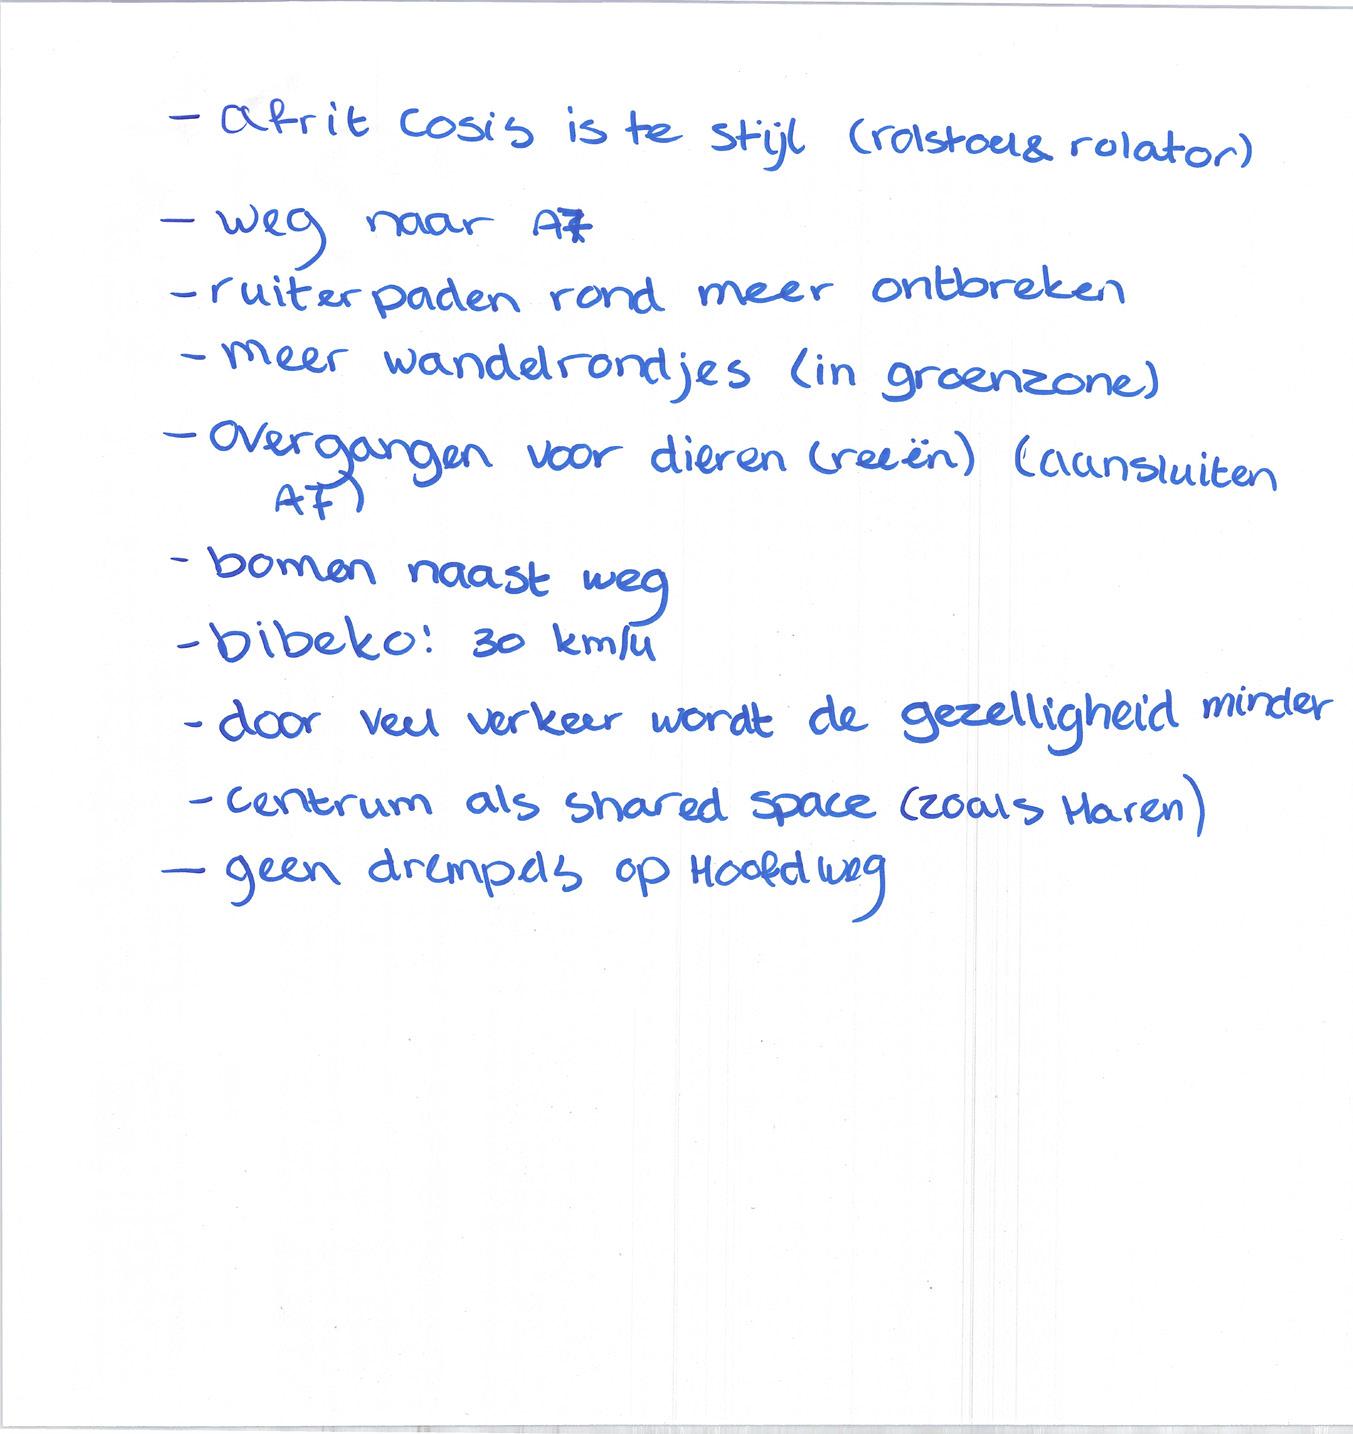 - afrit Cosis is te stijl (rolstoel & rolator)
- weg naar A7
- ruiterpaden rond meer ontbreken
- meer wandelrondjes (in groenzone)
- overgangen voor dieren (reeën) (aansluiten
A7)
- bomen naast weg
- bibeko: 30 km/u
- door veel verkeer wordt de gezelligheid minder
- centrum als shared space (zoals Haren)
- geen drempels op Hoofdweg